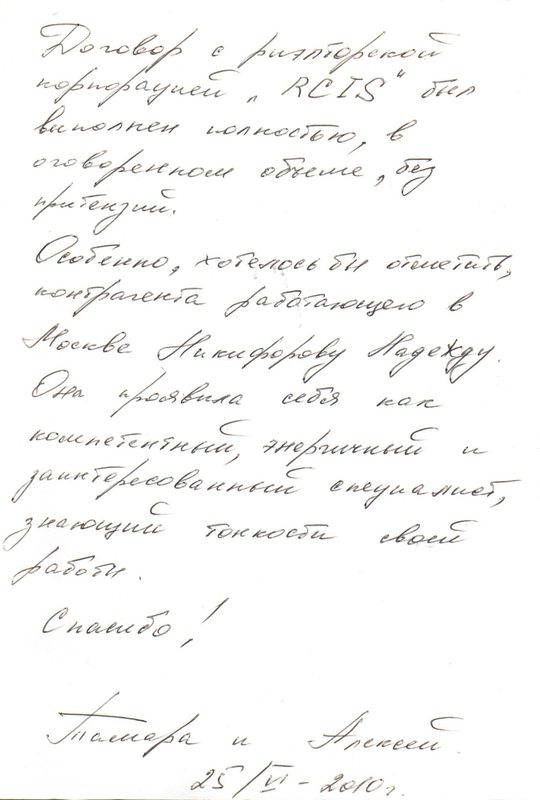 Договор с риэлторской
корпорацией „RCIS" был
выполнен полностью, в
оговоренном объеме, без
притензий.
Особенно, хотелось бы отметить,
контрагента работающего в
Москве Никифорову Надежду.
Она проявила себя как
компетентный, энергичный и
заинтересованный специалист,
знающий тонкости своей
работы.
Спасибо!
Тамара и Алексей.
25/VI-2010г.